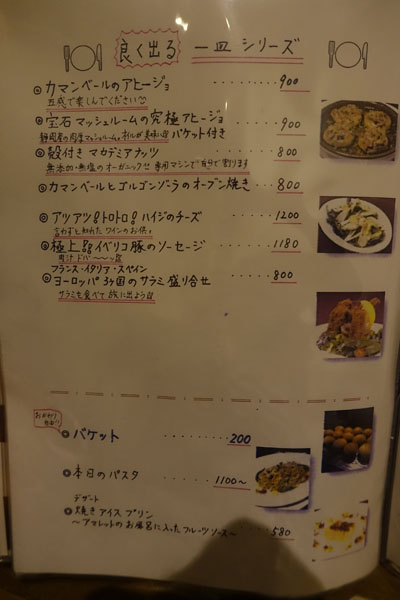 良く出る 一皿シリーズ
◎カマンベールのアヒージョ ‥‥‥‥ 900
五感で楽しんでください
◎宝石マッシュルームの究極アヒージョ ‥‥‥ 900
静岡産の肉厚マッシュルーム オイルが美味い バケット付き
◎殻付きマカデミアナッツ ‥‥‥‥ 800
無添加・無塩のオーガニック!! 専用マシンで自分で割ります
◎カマンベールとゴルゴンゾーラのオーブン焼き‥ 800
◎アツアツ!トロトロ!ハイジのチーズ ‥‥‥ 1200
言わずと知れた ワインのお供。
◎極上イベリコ豚のソーセージ ‥‥‥‥ 1180
肉汁ドバ〜〜っ
フランス・イタリア・スペイン
◎ヨーロッパ3ヶ国のサラミ盛り合せ ‥‥‥ 800
サラミを食べて旅に出よう
おかわり自由
◎バケット ‥‥‥‥ 200
◎本日のパスタ ‥‥‥‥ 1100〜
デザート
◎焼きアイスプリン
〜アマレットのお風呂に入ったフルーツソース〜 ‥‥ 580